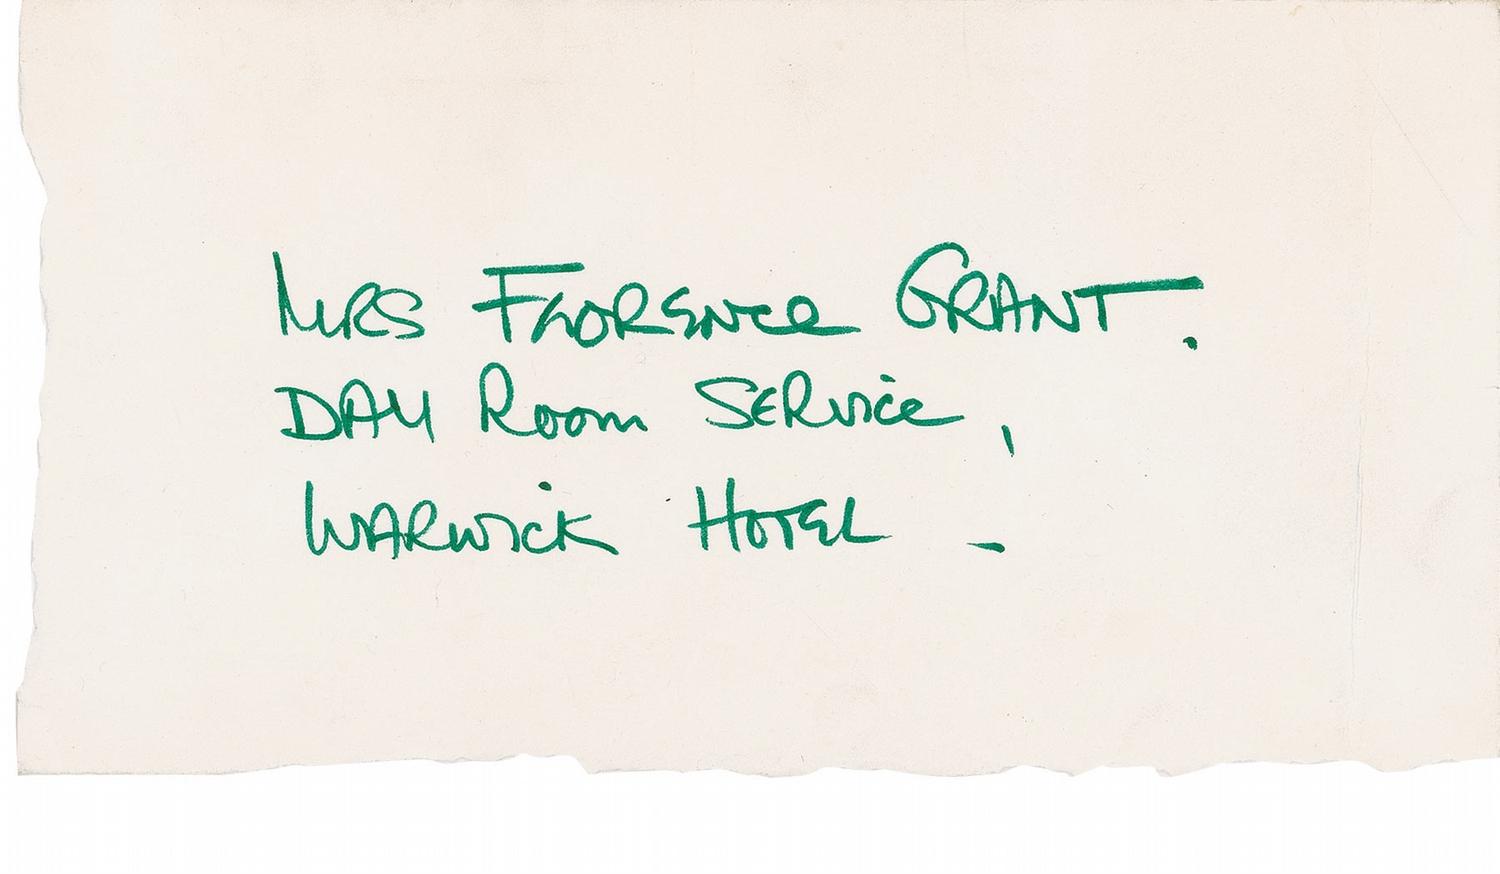 MRS FLORENCE GRANT.
DAY Room SERvice,
WARWicK HOTEL -